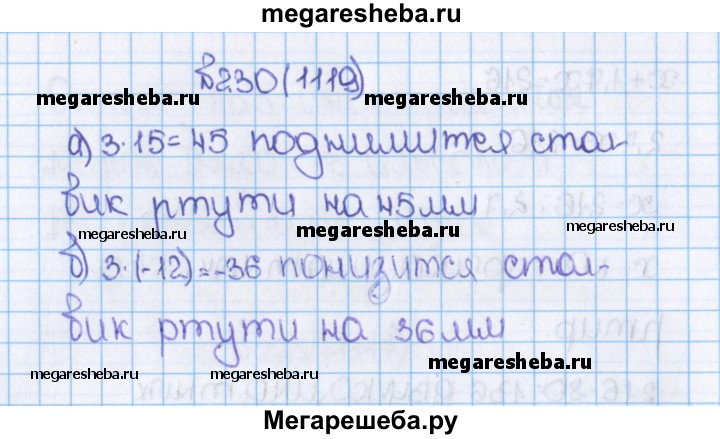 megaresheba.ru
№230(1119)
megaresheba.ru megaresheba.ru
а) 3·15=45 поднимится стол-
вик ртути на 45мм
megaresheba.ru megaresheba.ru megaresheba.ru
б) 3·(-12)=-36 понизится стол-
вик ртути на 36мм
megaresheba.ru
megaresheba.ru megaresheba.ru
Мегарешеба.ру